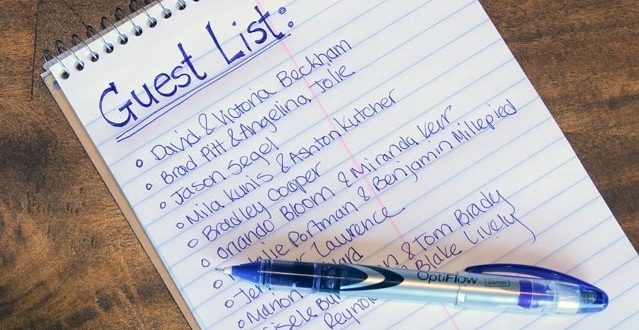 Guest List:
David & Victoria Beckham
Brad Pitt & Angelina Jolie
Jason Segel
Mila Kunis & Ashton Kutcher
Bradley Cooper
Orlando Bloom & Miranda Kerr
Portman & Benjamin Millepied
Lawrence
Marion
Gisele & Tom Brady
Blake Lively
OptiFlow